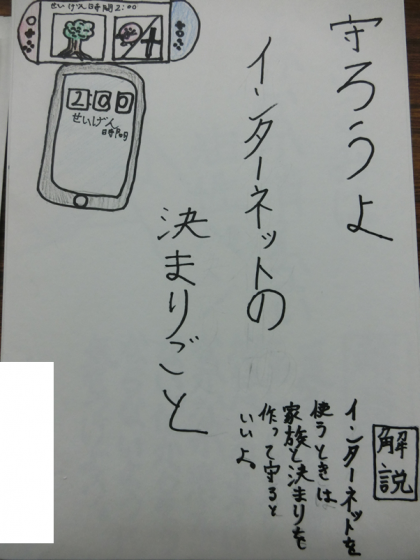 せいげん時間2:00
2:00
せいげん
時間
守ろうよ
インターネットの
決まりごと
解説
インターネットを
使うときは
家族と決まりを
作って守ると
いいよ。